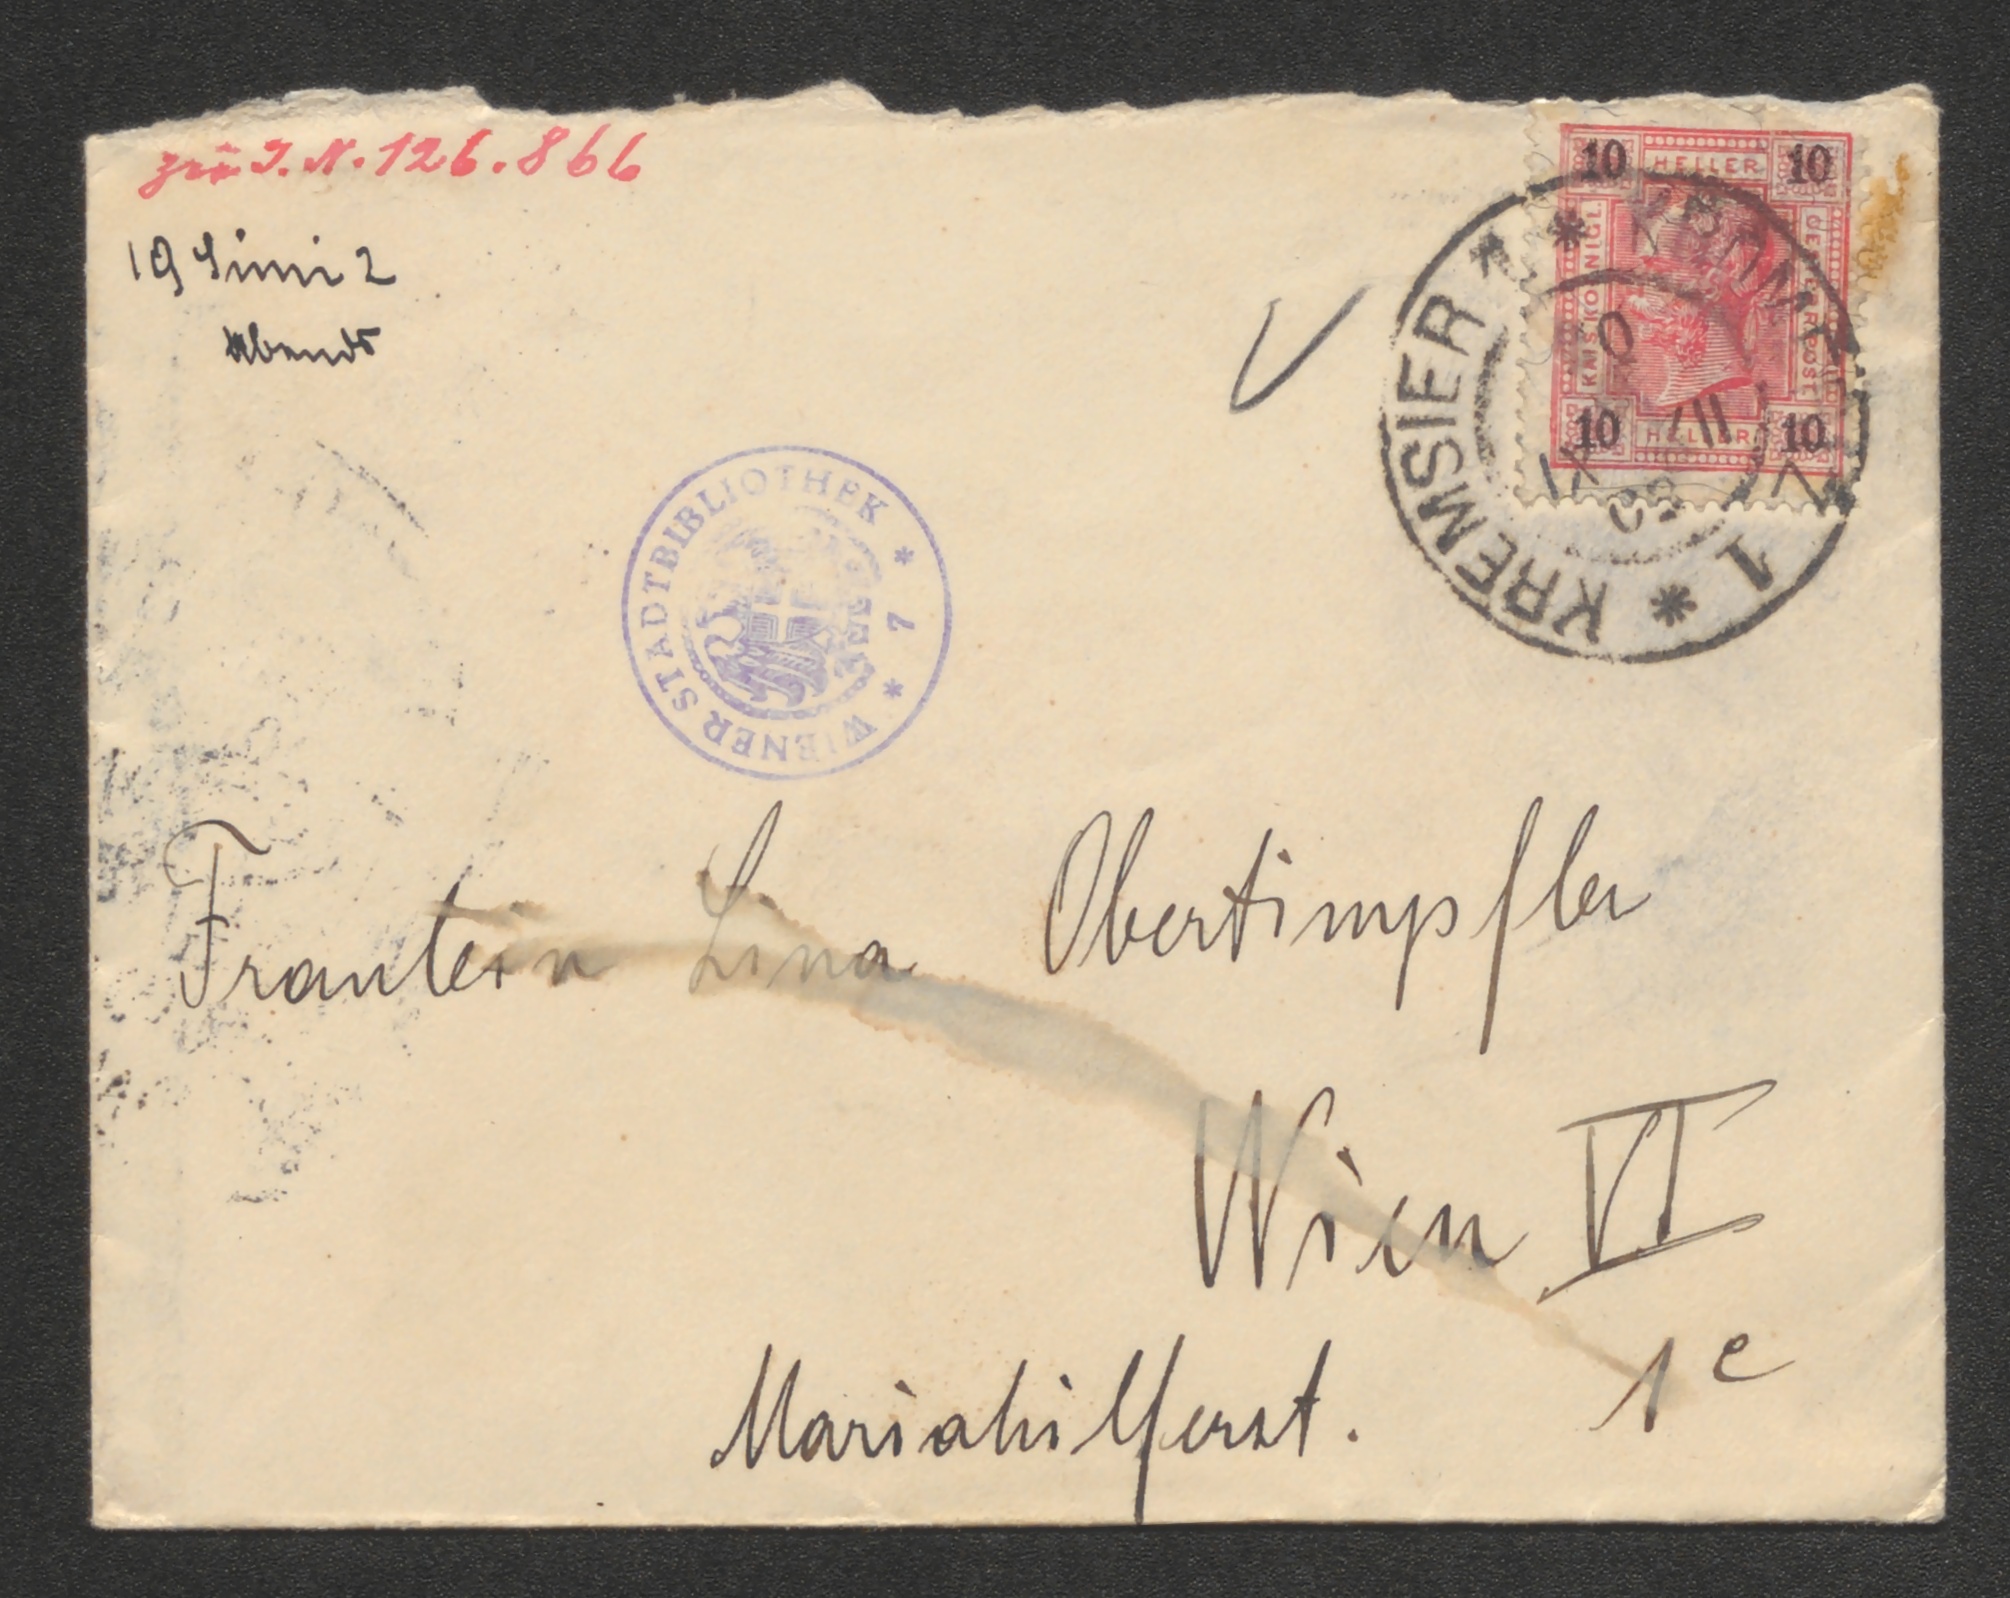 zu I.N. 126.866
19 Juni 2
Abends
10 HELLER 10
KAIS. KÖNIGL.
OESTERR. POST
10 HELLER 10
KREMSIER 1 * 1 *
WIENER STADTBIBLIOTHEK * 7 *
Fraulein Lina Obertimpfler
Wien VI
Mariahilferst. 1e